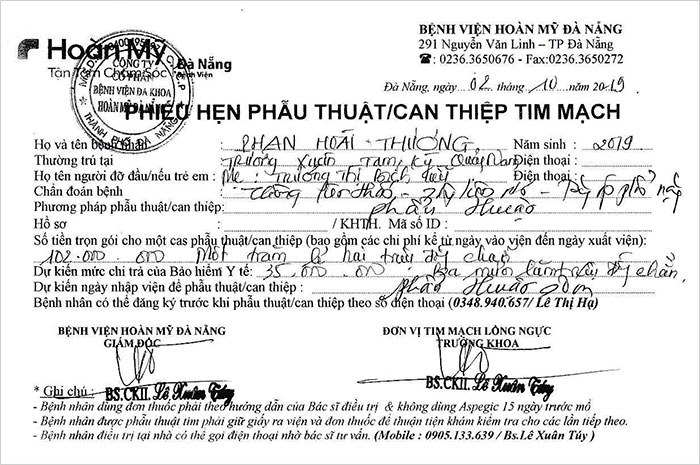 Hoàn Mỹ
Đà Nẵng
Tận Tâm Chăm Sóc Bệnh Viện
CÔNG TY
CỔ PHẦN
BỆNH VIỆN ĐA KHOA
HOÀN MỸ ĐÀ NẴNG
THÀNH PHỐ ĐÀ NẴNG
BỆNH VIỆN HOÀN MỸ ĐÀ NẴNG
291 Nguyễn Văn Linh – TP Đà Nẵng
☎: 0236.3650676 - Fax:0236.3650272
Đà Nẵng, ngày 02 tháng 10 năm 2019
PHIẾU HẸN PHẪU THUẬT/CAN THIỆP TIM MẠCH
Họ và tên bệnh nhân : PHAN HOÀI THƯƠNG Năm sinh : 2019
Thường trú tại : Trường Xuân Tam Kỳ Quảng Nam Điện thoại :
Họ tên người đỡ đầu/nếu trẻ em : Mẹ : Trương Thị Bích Điện thoại :
Chẩn đoán bệnh : Thông liên thất -
Phương pháp phẫu thuật/can thiệp: phẫu thuật
Hồ sơ : / KHTH. Mã số ID :
Số tiền trọn gói cho một cas phẫu thuật/can thiệp (bao gồm các chi phí kể từ ngày vào viện đến ngày xuất viện):
102.000.000 Một trăm lẻ hai triệu đồng chẵn
Dự kiến mức chi trả của Bảo hiểm Y tế: 35.000.000 - Ba mươi lăm triệu đồng chẵn.
Dự kiến ngày nhập viện để phẫu thuật/can thiệp : phẫu thuật sớm
Bệnh nhân có thể đăng ký trước khi phẫu thuật/can thiệp theo số điện thoại (0348.940.657/ Lê Thị Hạ)
BỆNH VIỆN HOÀN MỸ ĐÀ NẴNG
GIÁM ĐỐC
ĐƠN VỊ TIM MẠCH LỒNG NGỰC
TRƯỞNG KHOA
BS.CKII. Lê Xuân Túy
BS.CKII. Lê Xuân Túy
* Ghi chú :
- Bệnh nhân dùng đơn thuốc phải theo hướng dẫn của Bác sĩ điều trị & không dùng Aspegic 15 ngày trước mổ
- Bệnh nhân được phẫu thuật tim phải giữ giấy ra viện và đơn thuốc để thuận tiện khám kiểm tra cho các lần tiếp theo.
- Bệnh nhân điều trị tại nhà có thể gọi điện thoại nhờ bác sĩ tư vấn. (Mobile : 0905.133.639 / Bs.Lê Xuân Túy )